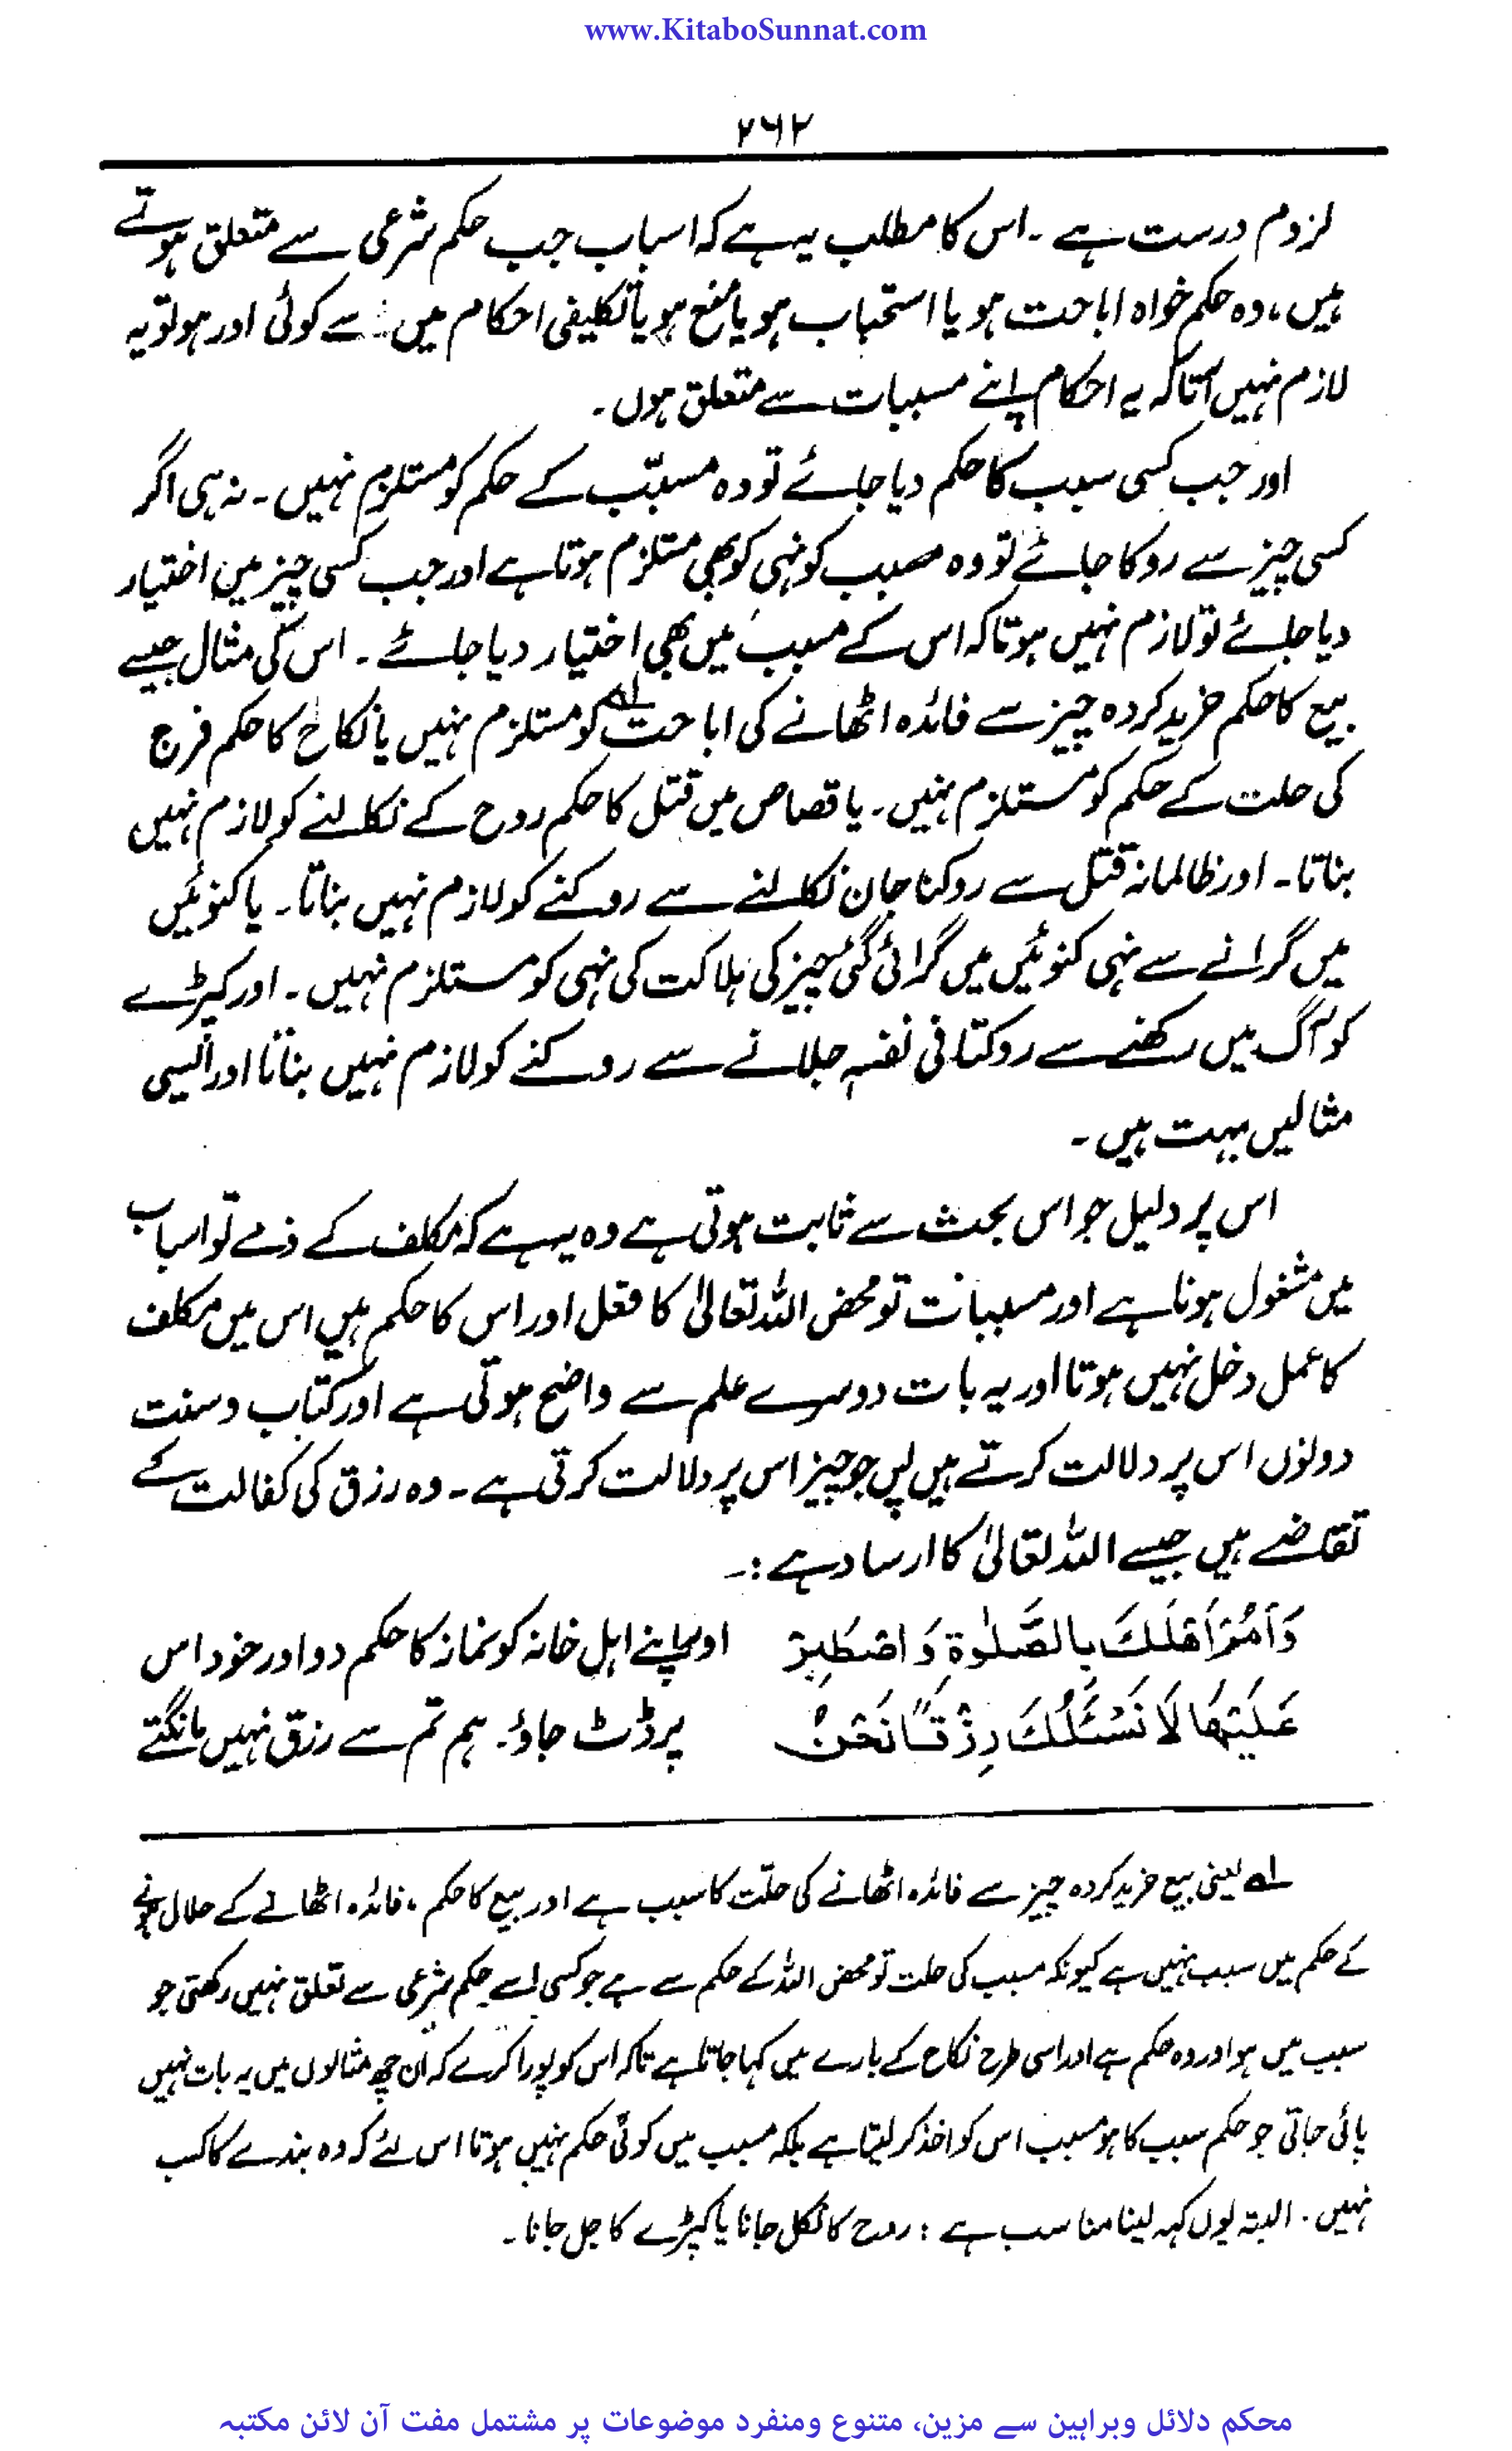 www.KitaboSunnat.com
۲۶۲
لزوم درست ہے ۔ اس کا مطلب یہ ہے کہ اسباب جب حکم شرعی سے متعلق ہوتے
ہیں، وہ حکم خواہ اباحت ہو یا استحباب ہو یا منع ہو یا تکلیفی احکام میں سے کوئی اور ہو تو یہ
لازم نہیں آتا کہ یہ احکام اپنے مسببات سے متعلق ہوں ۔
اور جب کسی سبب کا حکم دیا جائے تو وہ مسبّب کے حکم کو مستلزم نہیں ۔ نہ ہی اگر
کسی چیز سے روکا جائے تو وہ مسبب کو نہی کو بھی مستلزم ہوتا ہے اور جب کسی چیز میں اختیار
دیا جائے تو لازم نہیں ہوتا کہ اس کے مسبب میں بھی اختیار دیا جائے ۔ اس کی مثال جیسے
بیع کا حکم خرید کردہ چیز سے فائدہ اٹھانے کی اباحت لہ کو مستلزم نہیں یا نکاح کا حکم فرج
کی حلت کے حکم کو مستلزم نہیں ۔ یا قصاص میں قتل کا حکم روح کے نکالنے کو لازم نہیں
بناتا ۔ اور ظالمانہ قتل سے روکنا جان نکالنے سے روکنے کو لازم نہیں بناتا ۔ یا کنوئیں
میں گرانے سے نہی کنوئیں میں گرائی گئی چیز کی ہلاکت کی نہی کو مستلزم نہیں ۔ اور کپڑے
کو آگ میں رکھنے سے روکنا فی نفسہٖ جلانے سے روکنے کو لازم نہیں بناتا اور ایسی
مثالیں بہت ہیں ۔
اس پر دلیل جو اس بحث سے ثابت ہوتی ہے وہ یہ ہے کہ مکلف کے ذمے تو اسباب
میں مشغول ہونا ہے اور مسببات تو محض اللہ تعالیٰ کا فعل اور اس کا حکم ہیں اس میں مکلف
کا عمل دخل نہیں ہوتا اور یہ بات دوسرے علم سے واضح ہوتی ہے اور کتاب و سنت
دونوں اس پر دلالت کرتے ہیں پس جو چیز اس پر دلالت کرتی ہے ۔ وہ رزق کی کفالت کے
تقاضے ہیں جیسے اللہ تعالیٰ کا ارساد ہے :۔
وَأْمُرْ اَهْلَكَ بِالصَّلٰوةِ وَاصْطَبِرْ اور اپنے اہل خانہ کو نماز کا حکم دو اور خود اس
عَلَيْهَا لَا نَسْـَٔلُكَ رِزْقًا نَحْنُ پر ڈٹ جاؤ ۔ ہم تم سے رزق نہیں مانگتے
لہ یعنی بیع خرید کردہ چیز سے فائدہ اٹھانے کی حلّت کا سبب ہے اور بیع کا حکم ، فائدہ اٹھانے کے حلال ہونے
کے حکم میں سبب نہیں ہے کیونکہ مسبب کی حلت تو محض اللہ کے حکم سے ہے جو کسی ایسے حکم شرعی سے تعلق نہیں رکھتی جو
سبب میں ہو اور وہ حکم ہے اور اسی طرح نکاح کے بارے میں کہا جاتا ہے تاکہ اس کو پورا کرے کہ ان چھ مثالوں میں یہ بات نہیں
پائی جاتی جو حکم سبب کا ہو مسبب اس کو اخذ کر لیتا ہے بلکہ مسبب میں کوئی حکم نہیں ہوتا اس لئے کہ وہ بندے کا کسب
نہیں ۔ البتہ یوں کہہ لینا مناسب ہے : روح کا نکل جانا یا کپڑے کا جل جانا ۔
محکم دلائل وبراہین سے مزین، متنوع ومنفرد موضوعات پر مشتمل مفت آن لائن مکتبہ